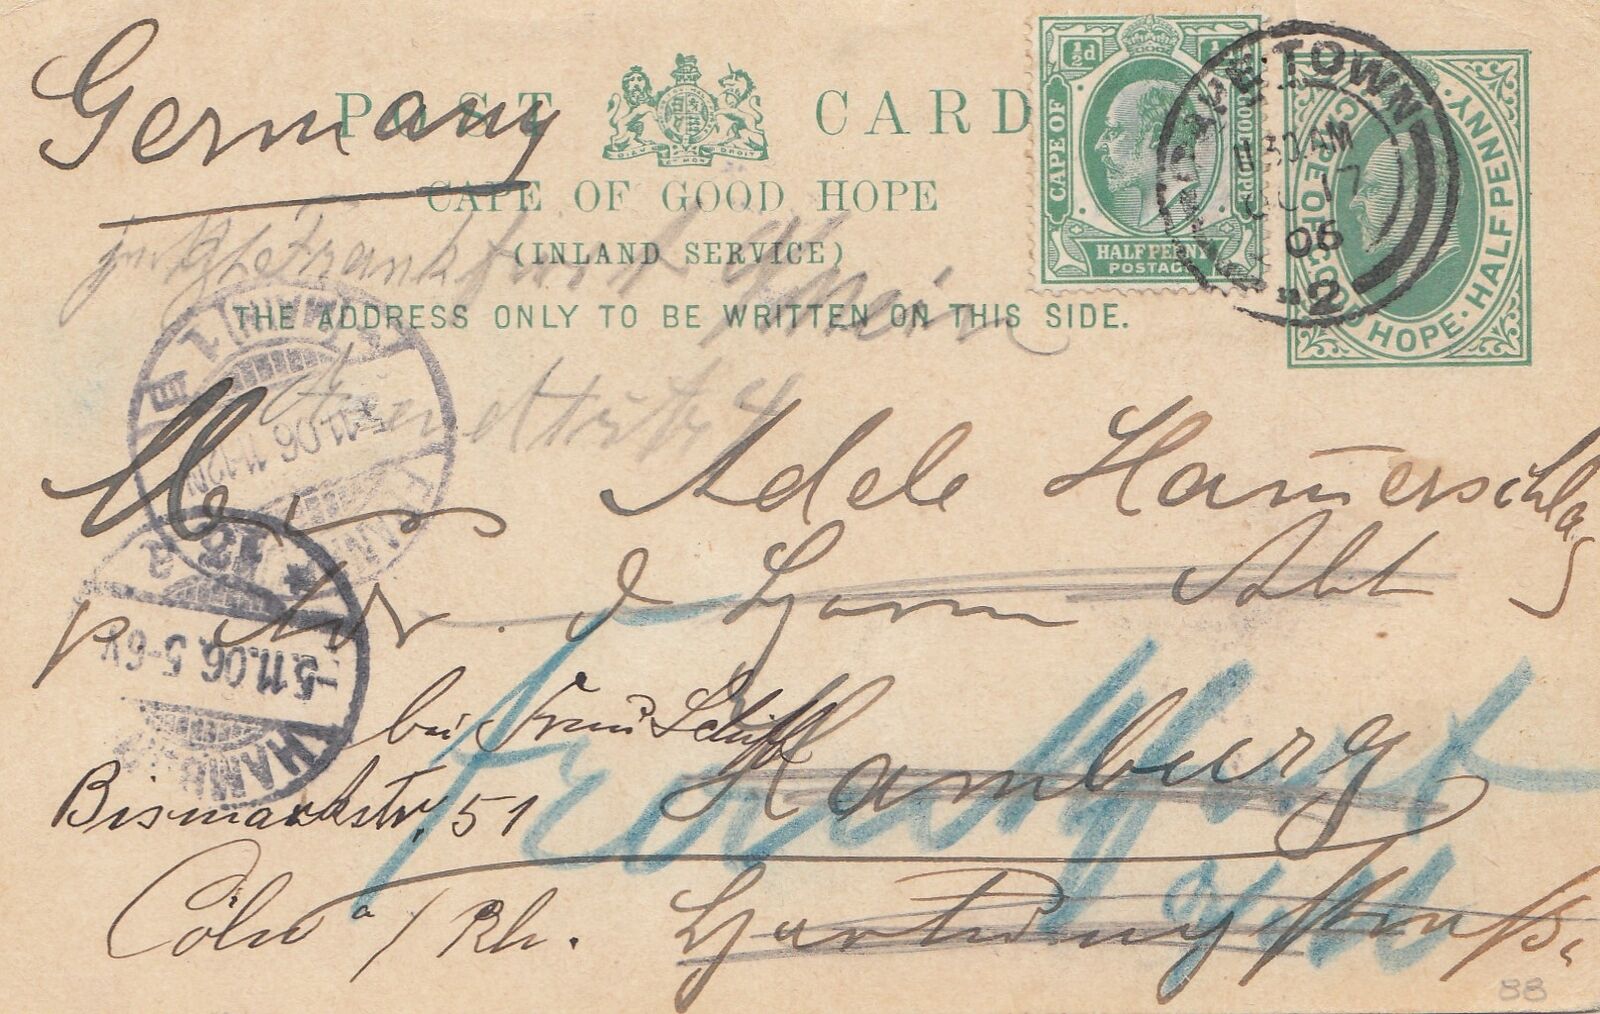 Germany
POST CARD
CAPE OF GOOD HOPE
(INLAND SERVICE)
THE ADDRESS ONLY TO BE WRITTEN ON THIS SIDE.
½d
CAPE OF
HALFPENNY
POSTAGE
CAPE TOWN
11.30 AM
OC 17
06
2
CAPE OF GOOD HOPE · HALF PENNY ·
Frankfurt a/Main
5.11.06 11-12N
Adele Hamerschlag
p Adr. J Abt
bei Frau Schiff
Hamburg
Bismarckstr. 51
Cöln a/Rh.
Frankfurt
a/M
HAMBURG
5.11.06. 5-6V
* 13
88